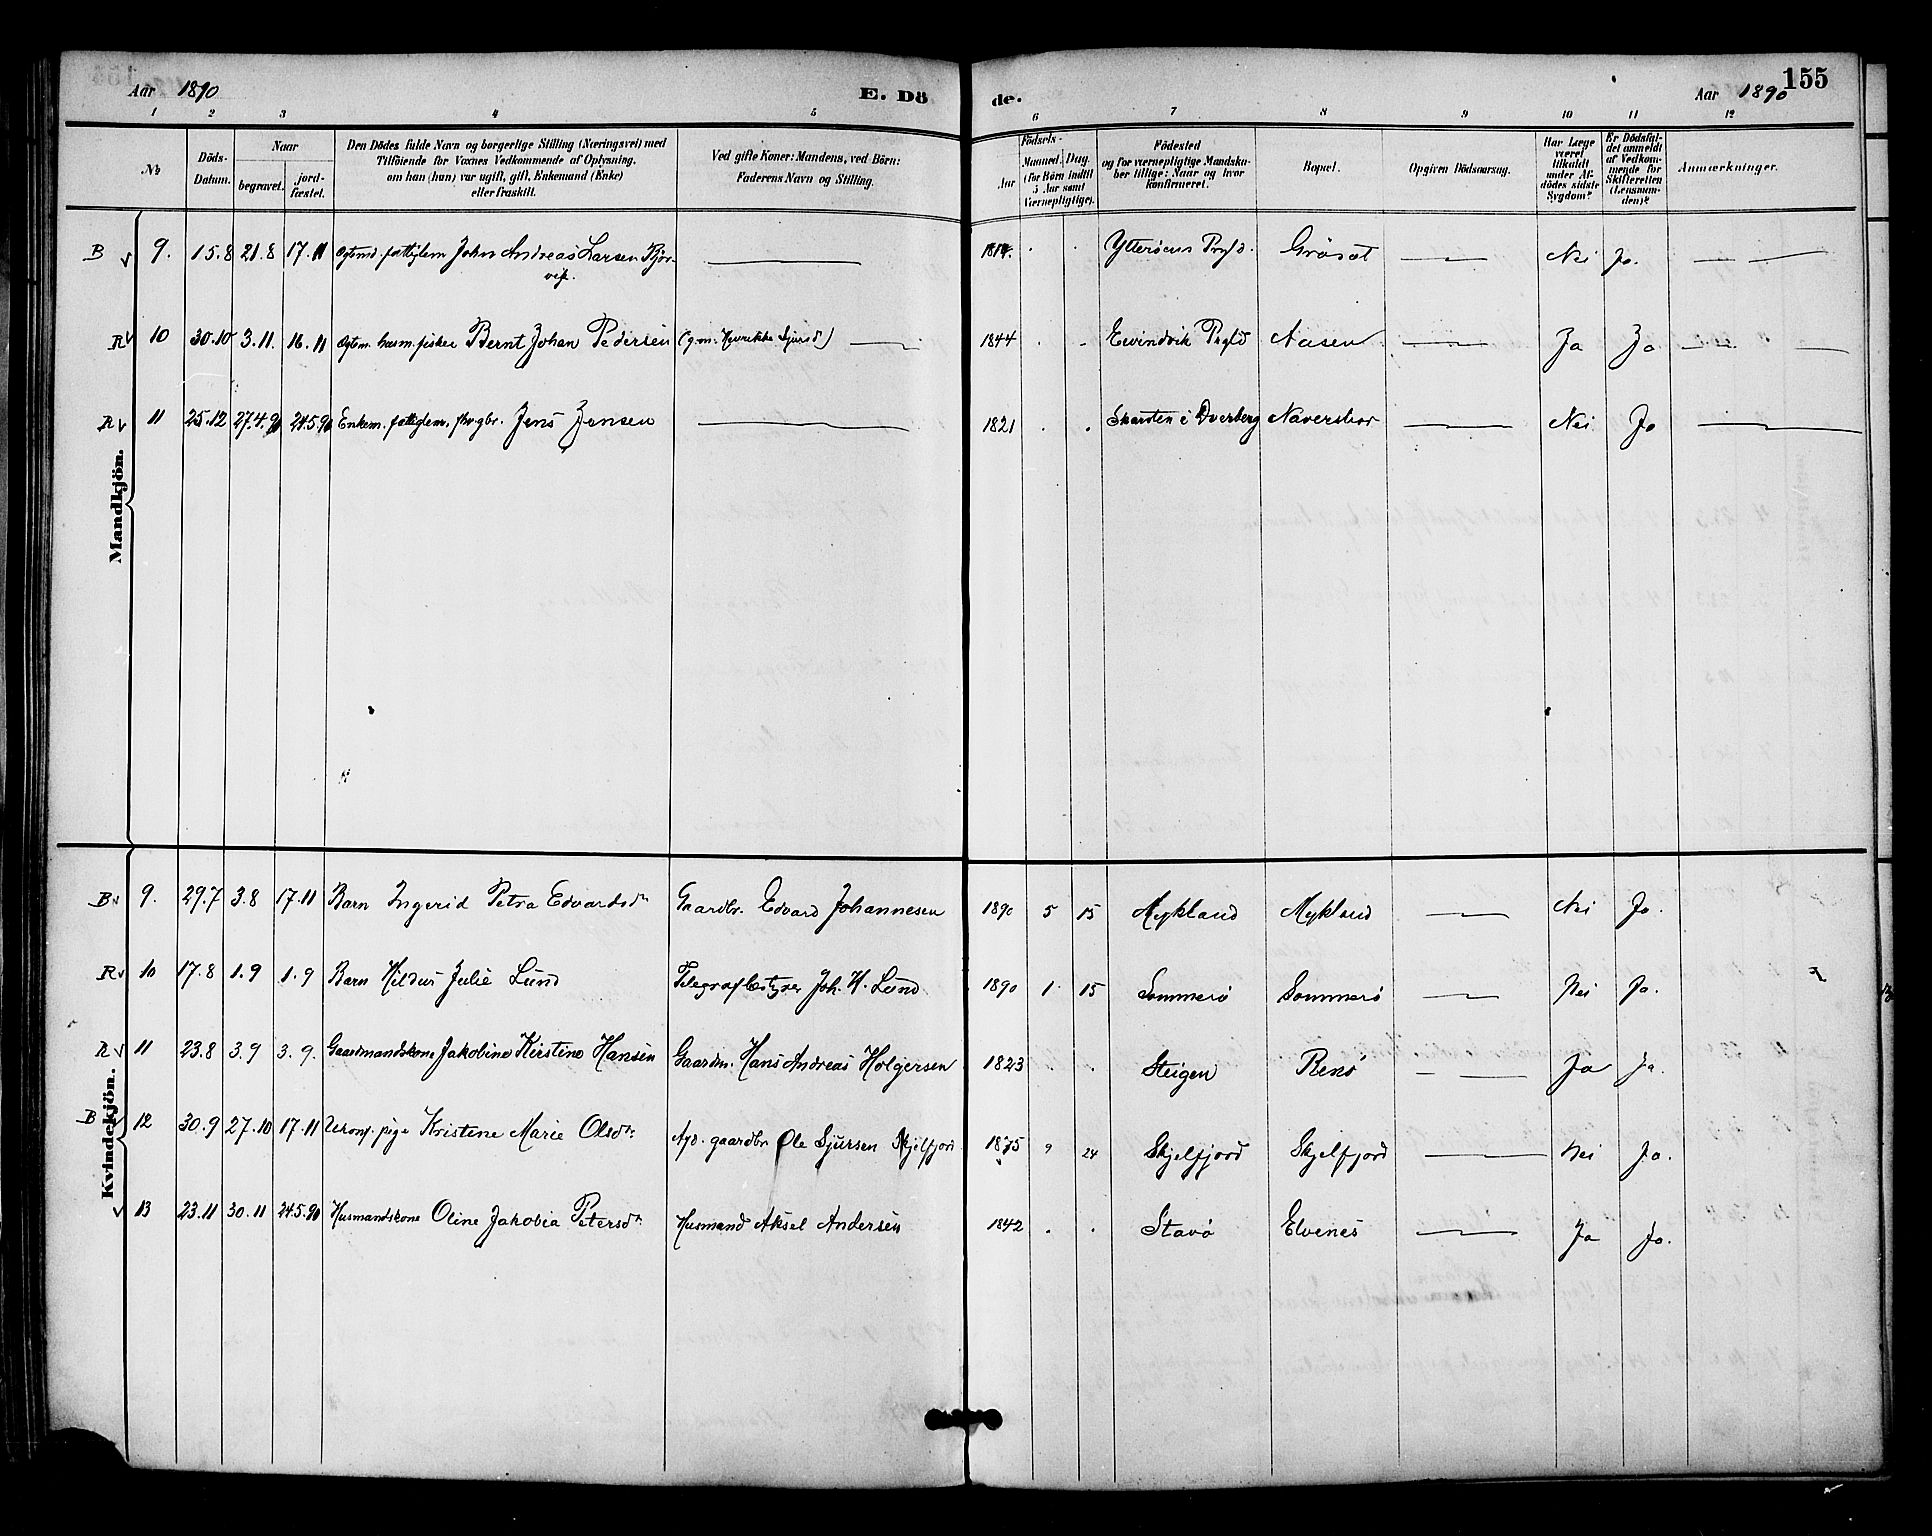 155
Aar 1890 E. Dö de. Aar 1890
1 2 3 4 5 6 7 8 9 10 11 12
No
Döds-
Datum.
Naar
begravet.
jord-
fæstet.
Den Dödes fulde Navn og borgerlige Stilling (Næringsvei) med
Tilföiende for Voxnes Vedkommende af Oplysning,
om han (hun) var ugift, gift, Enkemand (Enke)
eller fraskilt.
Ved gifte Koner: Mandens, ved Börn:
Faderens Navn og Stilling.
Födsels-
Aar
Maaned. Dag.
(for Börn indtil
5 Aar samt
Værnepligtige).
Födested
og for værnepligtige Mandska-
ber tillige: Naar og hvor
konfirmeret.
Bopæl.
Opgiven Dödsaarsag.
Har Læge
været
tilkaldt
under Af-
dödes sidste
Sygdom?
Er Dödsfal-
det anmeldt
af Vedkom-
mende for
Skifteretten
(Lensman-
den)?
Anmærkninger.
Mandkjön.
B 9. 15.8 21.8 17.11 John Andreas Larsen 1814. Ytteröens Prgld. Nei Ja.
R 10 30.10 3.11. 16.11 husm. fisker Bernt Johan Pedersen (g.m. Henrikke Sjursd) 1844 Eivindvik Prgld Aasen Ja Ja
R 11 25.12 27.4.91 24.5.91 Enkem. fattiglem, Jens Jensen 1821 Skarsten i Dverberg Naverstror Nei Ja
Kvindekjön.
B 9. 29.7 3.8 17.11 Barn Ingerid Petra Edvardsdr Gaardbr. Edvard Johannesen 1890 5 15 Mykland Mykland Nei Ja.
R 10 17.8 1.9 1.9 Barn Hildur Julie Lund Telegrafbestyrer Joh. H. Lund 1890 1 15 Sommerö Sommerö Nei Ja.
R 11 23.8 3.9 3.9. Gaardmandskone Jakobine Kirstine Hansen Gaardm. Hans Andreas Holgersen 1823 Steigen Renö Ja Ja.
B 12 30.9 27.10 17.11 Ukonf. pige Kristene Marie Olsdr. gaardbr. Ole Sjursen Skjelfjord 1875 9 24 Skjelfjord Skjelfjord Nei Ja.
13 23.11 30.11 24.5.91 Husmandskone Oline Jakobia Petersdr. Husmand Aksel Andersen 1842 Stavö Elvenes Ja Ja.